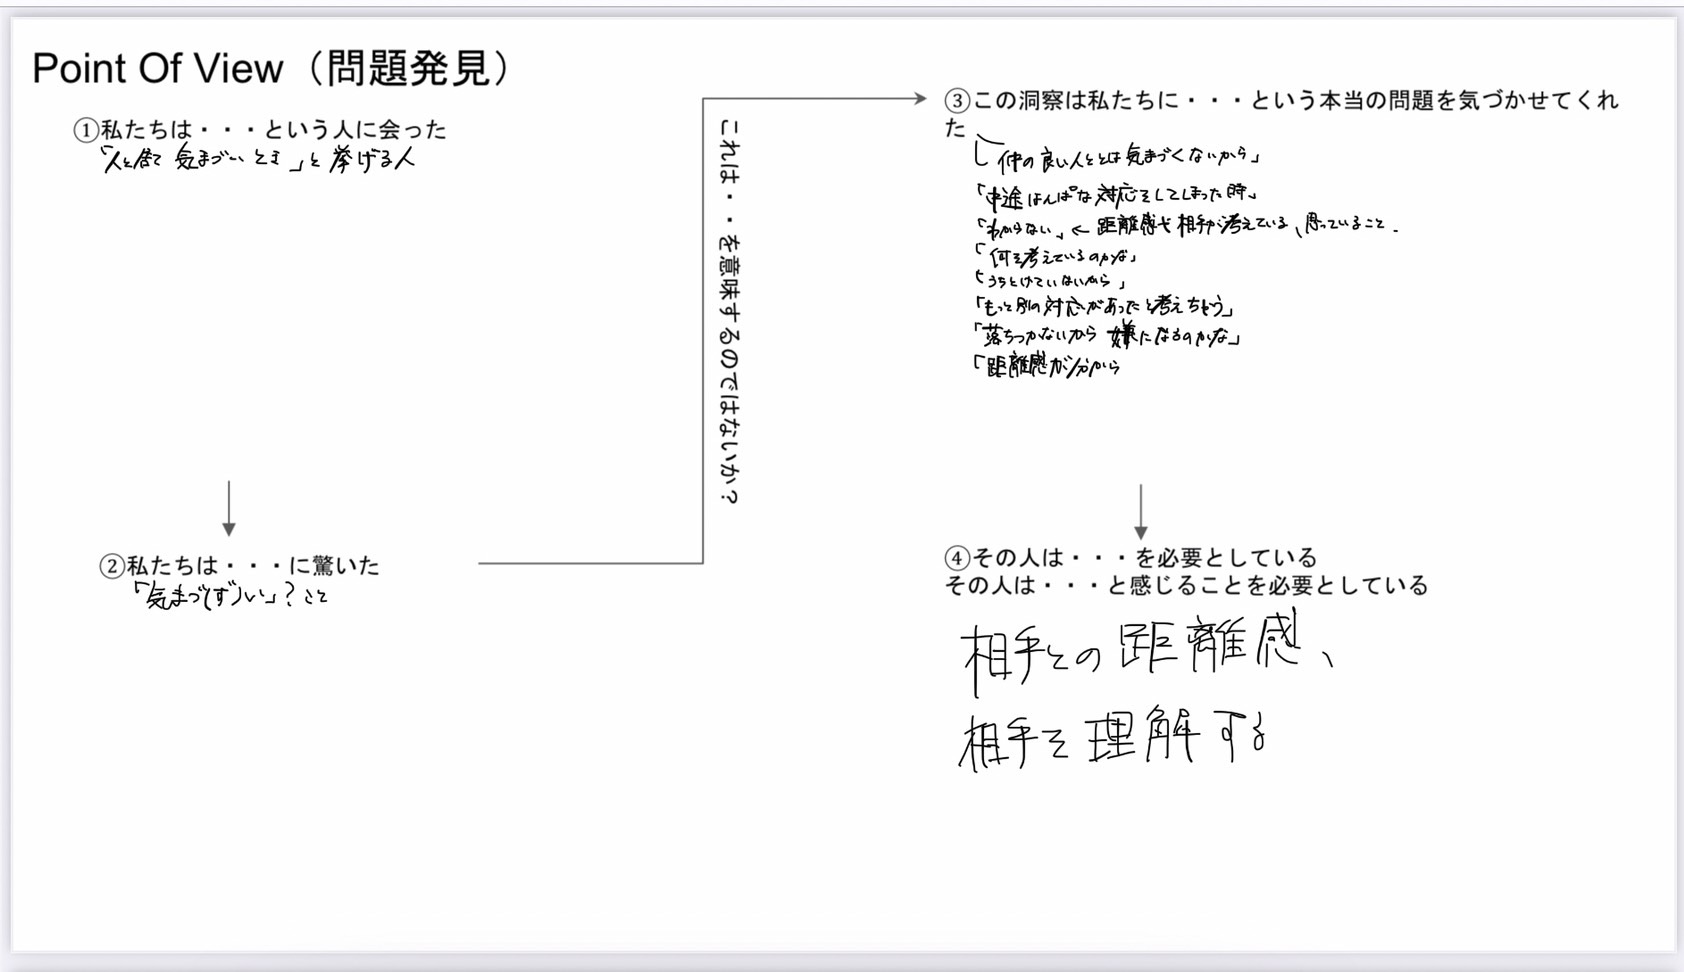 Point Of View（問題発見）
①私たちは・・・という人に会った
「人と居て 気まづいとき」と挙げる人
②私たちは・・・に驚いた
「気まづ(ず)い」？こと
これは・・を意味するのではないか？
③この洞察は私たちに・・・という本当の問題を気づかせてくれ
た
「仲の良い人とは気まづくないから」
「中途はんぱな対応をしてしまった時」
「わからない」← 距離感や相手が考えている、思っていること.
「何を考えているのかな」
「うちとけていないから」
「もっと別の対応があったと考えちゃう」
「落ちつかないから 嫌になるのかな」
「距離感が分から
④その人は・・・を必要としている
その人は・・・と感じることを必要としている
相手との距離感、
相手を理解する